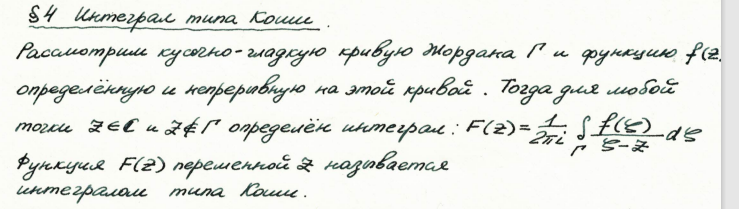 §4 Интеграл типа Коши.
Рассмотрим кусочно-гладкую кривую Жордана Γ и функцию f(z
определённую и непрерывную на этой кривой. Тогда для любой
точки z∈ℂ и z∉Γ определён интеграл: F(z)= 1/2πi ∫_Γ f(ξ)/(ξ-z) dξ
Функция F(z) переменной z называется
интегралом типа Коши.